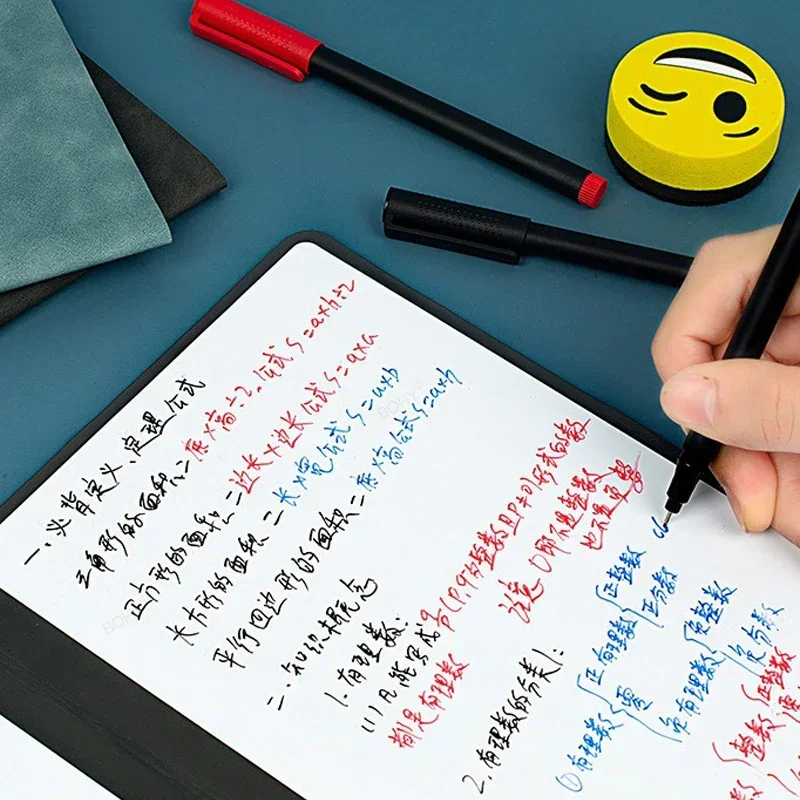 一、必背定义、定理公式
三角形的面积=底×高÷2。公式 S=a×h÷2
正方形的面积=边长×边长 公式 S=a×a
长方形的面积=长×宽 公式 S=a×b
平行四边形的面积=底×高 公式 S=a×h
二、知识概念
1.有理数:
(1)凡能写成 q/p (p,q为整数且p≠0)形式的数
都是有理数
注意 0即不是整数
也不是负
2.有理数的分类1:
①有理数
正有理数
正整数
正分数
零
负有理数
负整数
负分数
整数
正整数
零